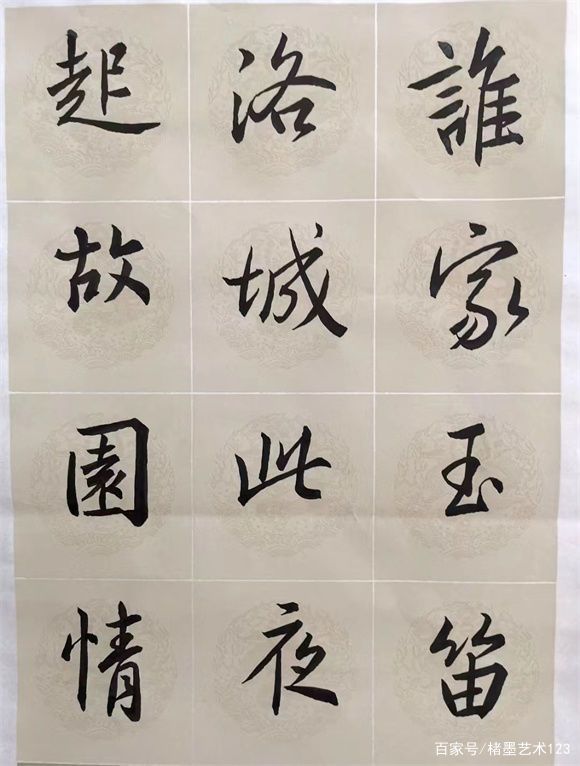 誰家玉笛
洛城此夜
起故園情
百家号/楮墨艺术123